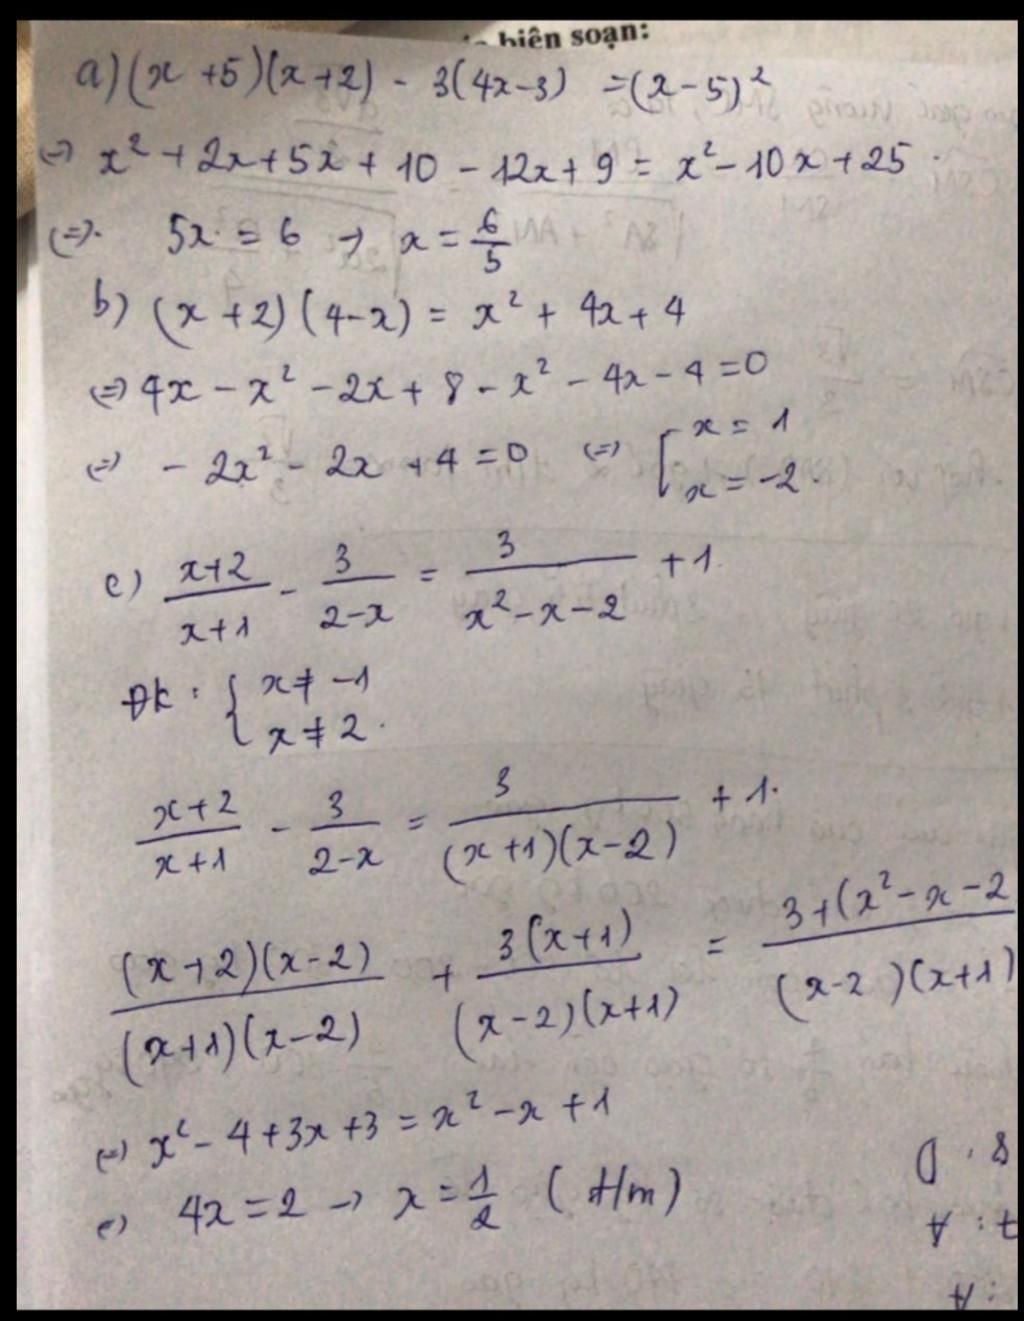 biên soạn:
a) (x + 5)(x + 2) - 3(4x - 3) = (x - 5)²
(=) x² + 2x + 5x + 10 - 12x + 9 = x² - 10x + 25.
(=). 5x = 6 → x = 6/5
b) (x + 2)(4 - x) = x² + 4x + 4
(=) 4x - x² - 2x + 8 - x² - 4x - 4 = 0
(=) - 2x² - 2x + 4 = 0 (=) [ x = 1
x = -2.
c) (x+2)/(x+1) - 3/(2-x) = 3/(x² - x - 2) + 1.
ĐK: { x ≠ -1
x ≠ 2.
(x+2)/(x+1) - 3/(2-x) = 3/((x+1)(x-2)) + 1.
((x+2)(x-2))/((x+1)(x-2)) + (3(x+1))/((x-2)(x+1)) = (3+(x² - x - 2)/((x-2)(x+1)
(=) x² - 4 + 3x + 3 = x² - x + 1
(=) 4x = 2 → x = 1/2 (t/m)
8. D
7: A
: A